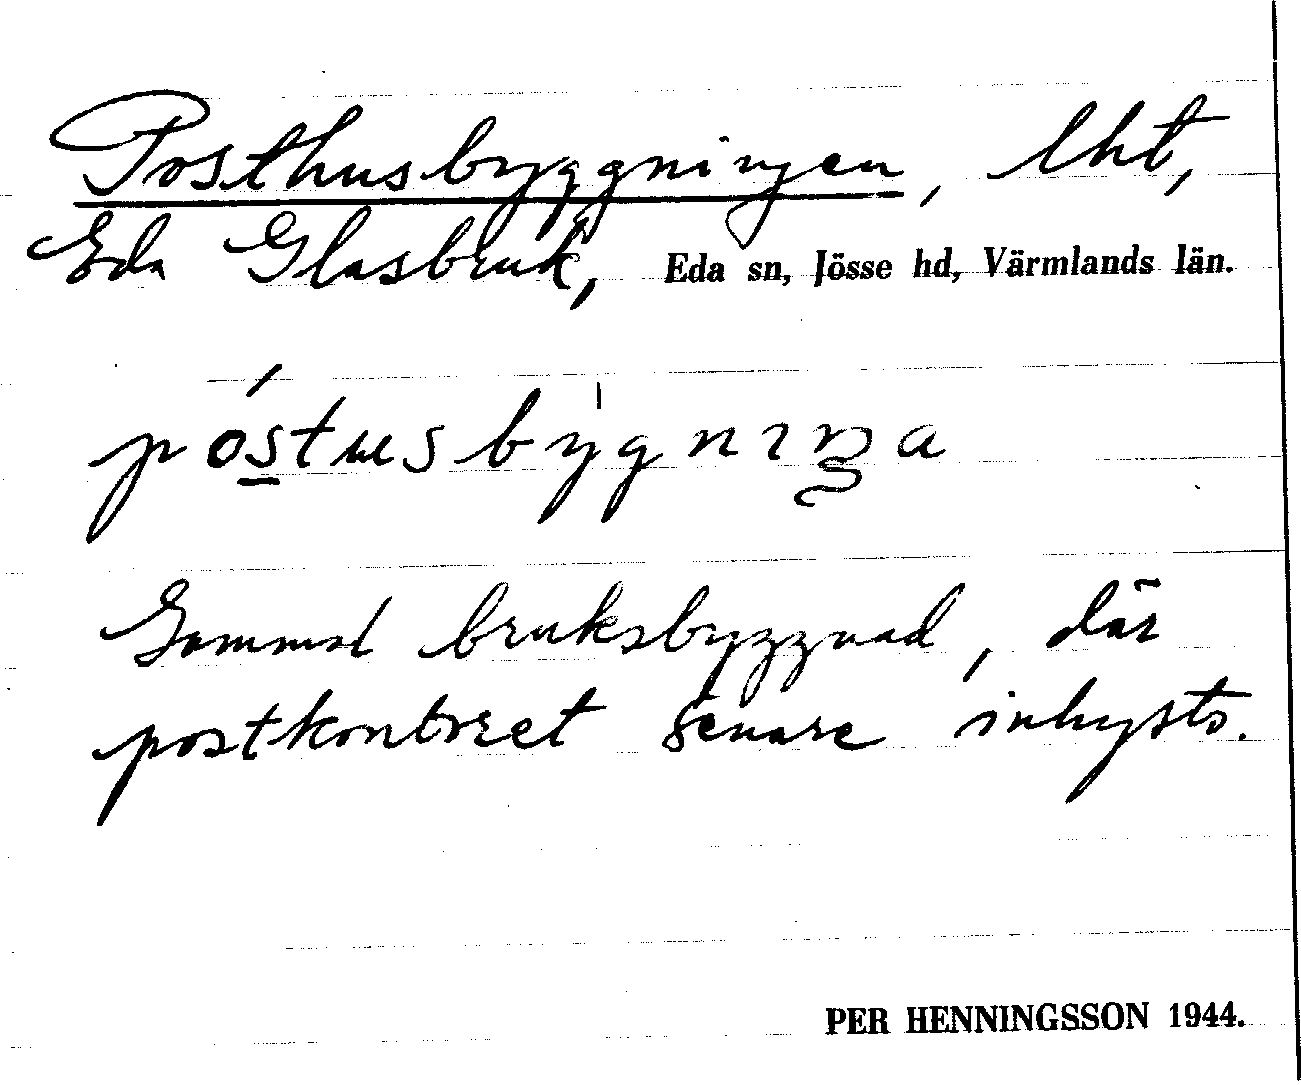 Posthusbyggningen, lht,
Eda Glasbruk, Eda sn, Jösse hd, Värmlands län.
póstusbýgnıŋa
Gammal bruksbyggnad, där
postkontoret senare inhysts.
PER HENNINGSSON 1944.